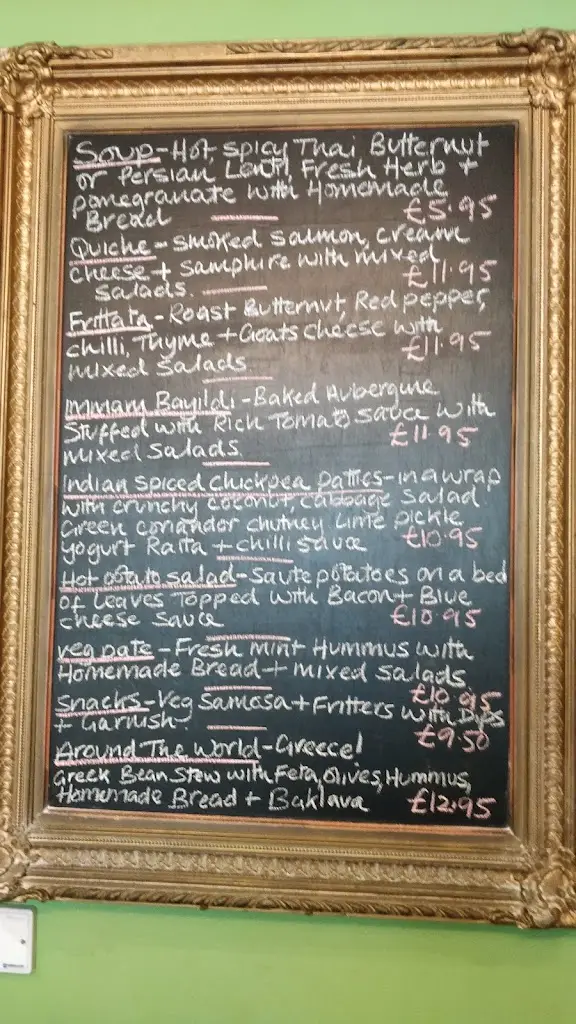 Soup-Hot, spicy Thai Butternut
or Persian Lentil, Fresh Herb +
pomegranate with Homemade
Bread £5.95
Quiche - Smoked Salmon, Cream
cheese + Samphire with mixed
Salads. £11.95
Frittata - Roast Butternut, Red pepper,
chilli, Thyme + Goats cheese with
mixed Salads £11.95
Immam Bayildi - Baked Aubergine
Stuffed with Rich Tomato Sauce with
mixed Salads. £11.95
Indian Spiced Chickpea patties - in a wrap
with crunchy coconut, cabbage Salad
Green coriander chutney Lime pickle
yogurt Raita + chilli sauce £10.95
Hot potato salad - Saute potatoes on a bed
of Leaves Topped with Bacon + Blue
cheese Sauce £10.95
veg pate - Fresh Mint Hummus with
Homemade Bread + mixed Salads
£10.95
Snacks - Veg Samosa + Fritters with Dips
+ Garnish. £9.50
Around The World - Greece!
Greek Bean Stew with Feta, Olives, Hummus,
Homemade Bread + Baklava £12.95